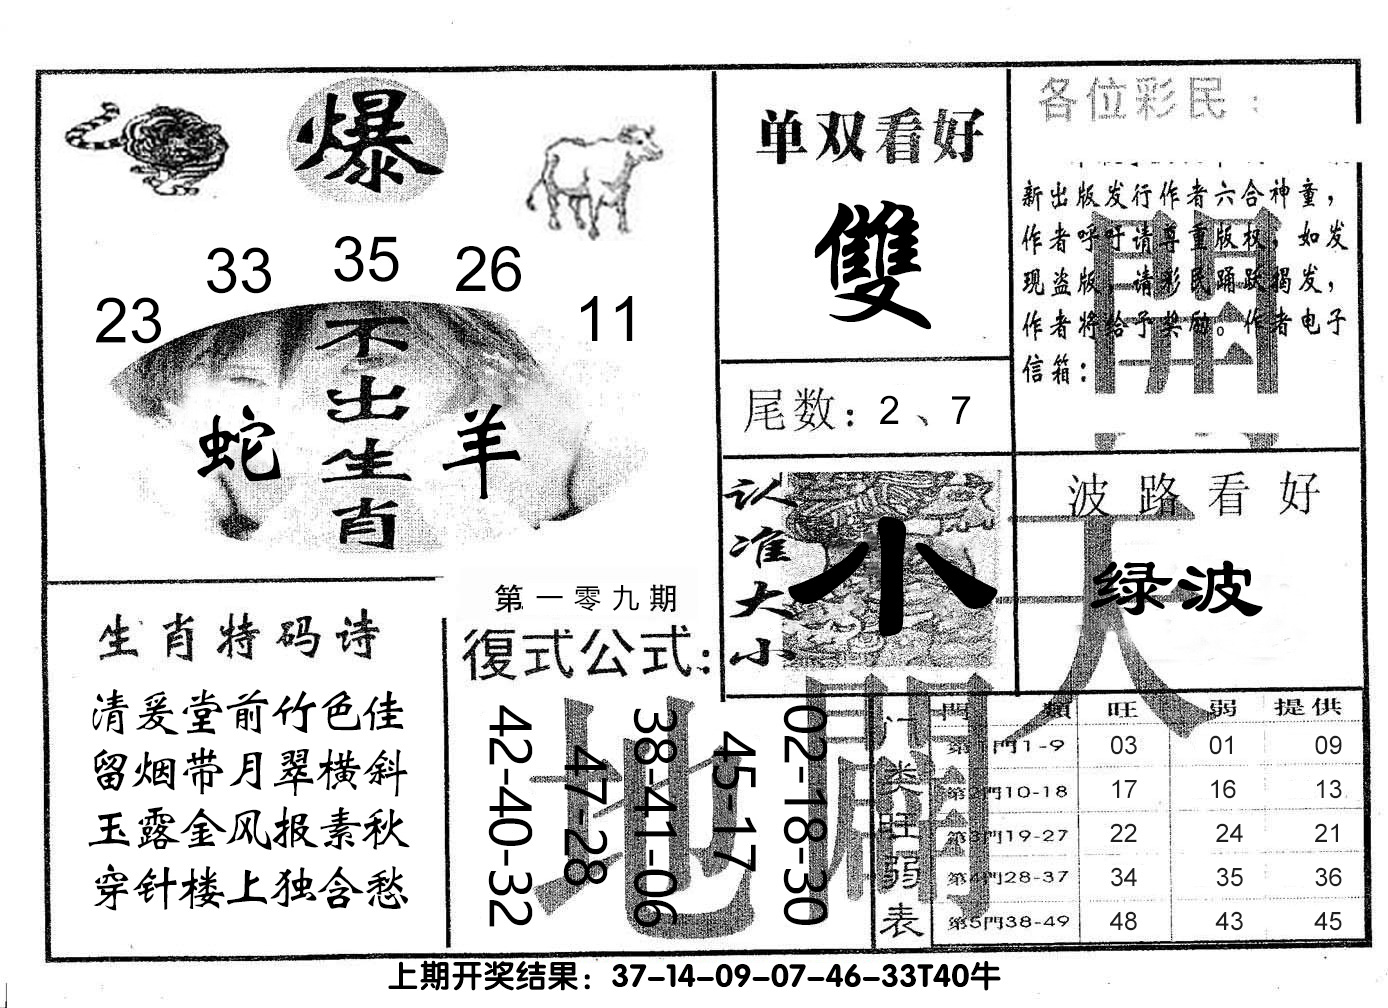 爆
23 33 35 26 11
不出生肖
蛇 羊
单双看好
雙
尾数：2、7
各位彩民：
新出版发行作者六合神童，
作者呼吁请尊重版权，如发
现盗版，请彩民踊跃揭发，
作者将给予奖励。作者电子
信箱：
認准大小
小
波路看好
绿波
生肖特码诗
清爰堂前竹色佳
留烟带月翠横斜
玉露金风报素秋
穿针楼上独含愁
第一零九期
復式公式：
42-40-32
47-28
38-41-06
45-17
02-18-30
開
天
地
門类旺弱表
門 類 旺 弱 提供
第1門1-9 03 01 09
第2門10-18 17 16 13
第3門19-27 22 24 21
第4門28-37 34 35 36
第5門38-49 48 43 45
上期开奖结果：37-14-09-07-46-33T40牛